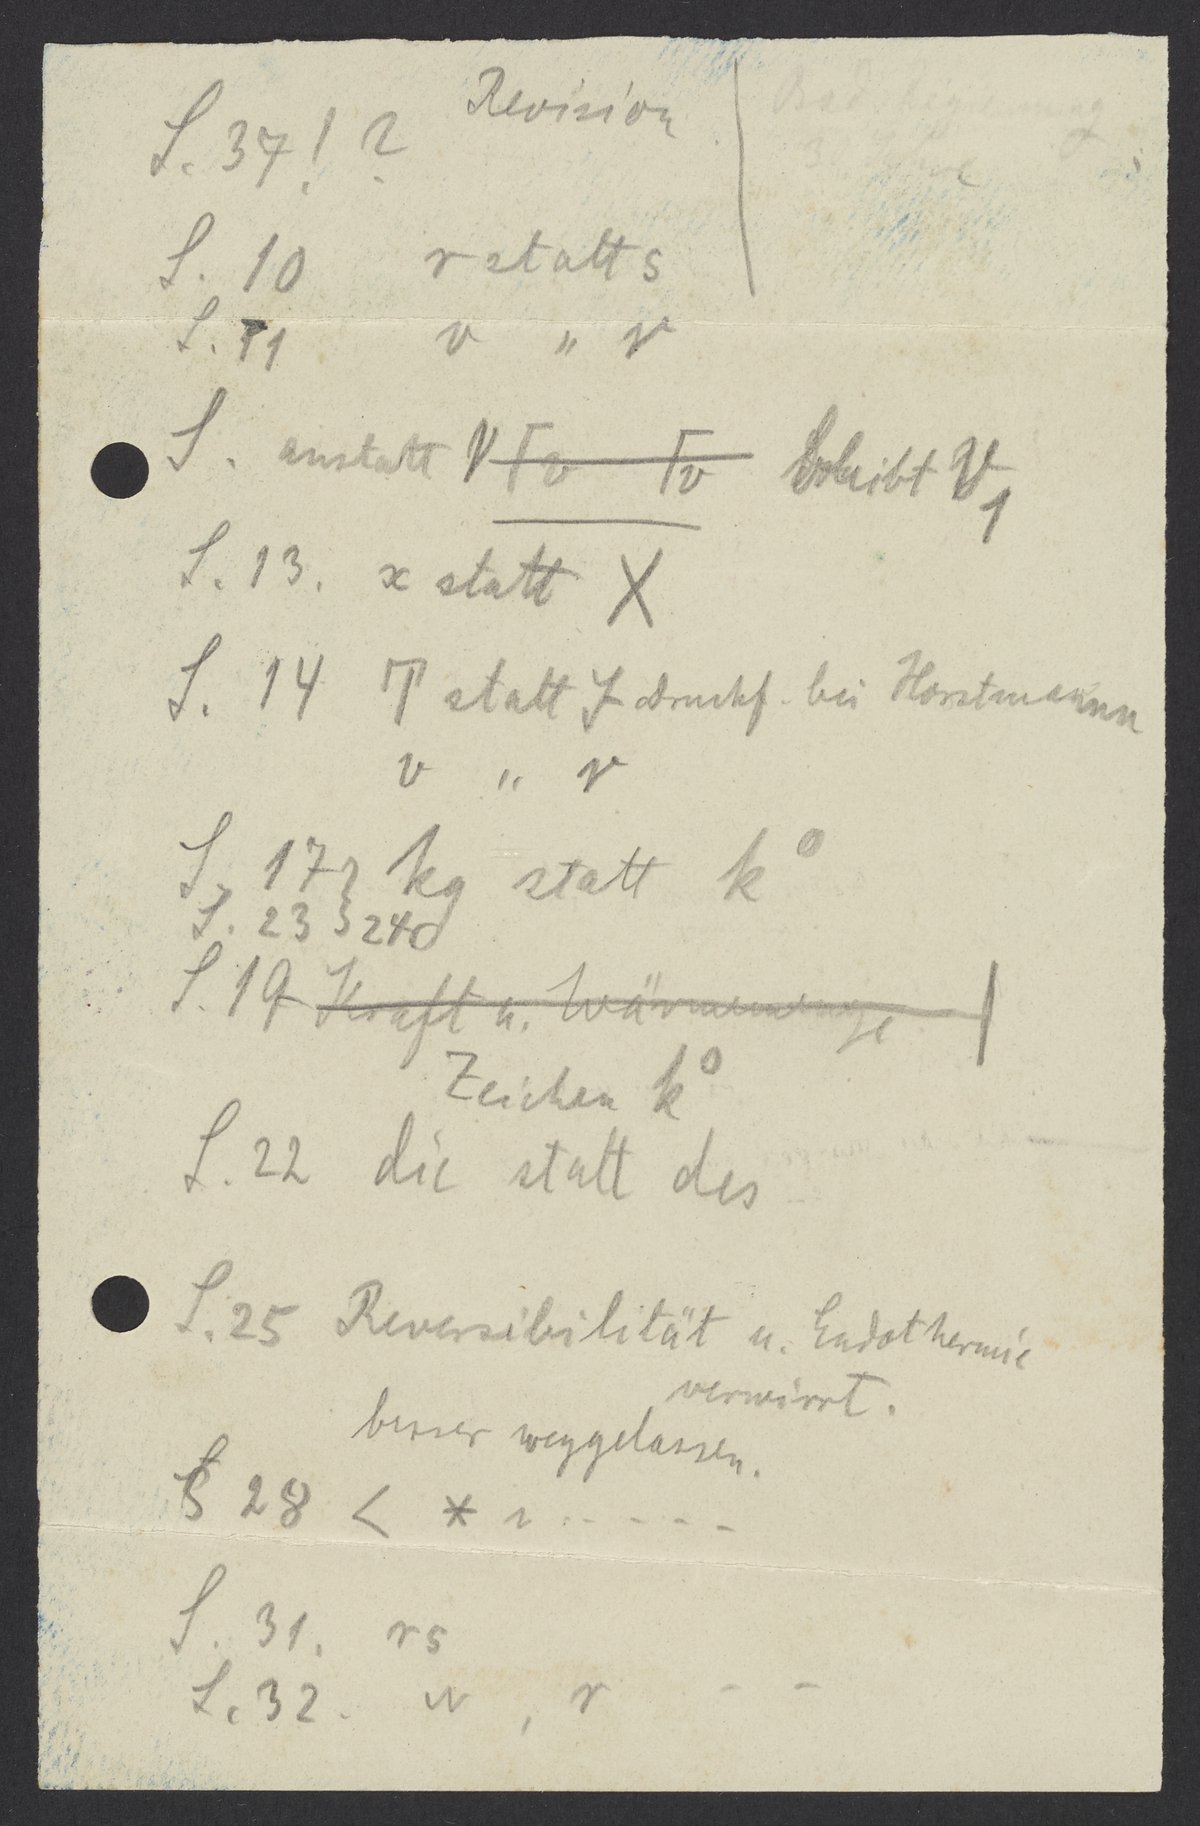 Revision
S. 37! ?
S. 10 r statt s
S. 11 v " r
S. anstatt V Tv Tv bleibt V1
S. 13. x statt X
S. 14 T statt J Druckf. bei Horstmann
v " r
S. 17 } kg statt k°
S. 23 } 240
S. 19 Kraft u. Wärmemenge
Zeichen k°
S. 22 die statt des
S. 25 Reversibilität u. Endothermie
verwirrt.
besser weggelassen.
S 28 < *
S. 31. rs
S. 32. , r - -